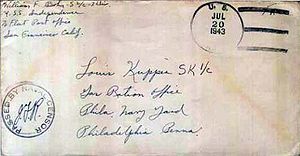 William F.
U.S.S. Independence
℅ Fleet Post Office
San Francisco Calif.
U. S.
JUL
20
1943
Louis Kuppie SK 1/c
Ration Office
Phila. Navy Yard
Philadelphia Penna.
PASSED BY NAVAL CENSOR